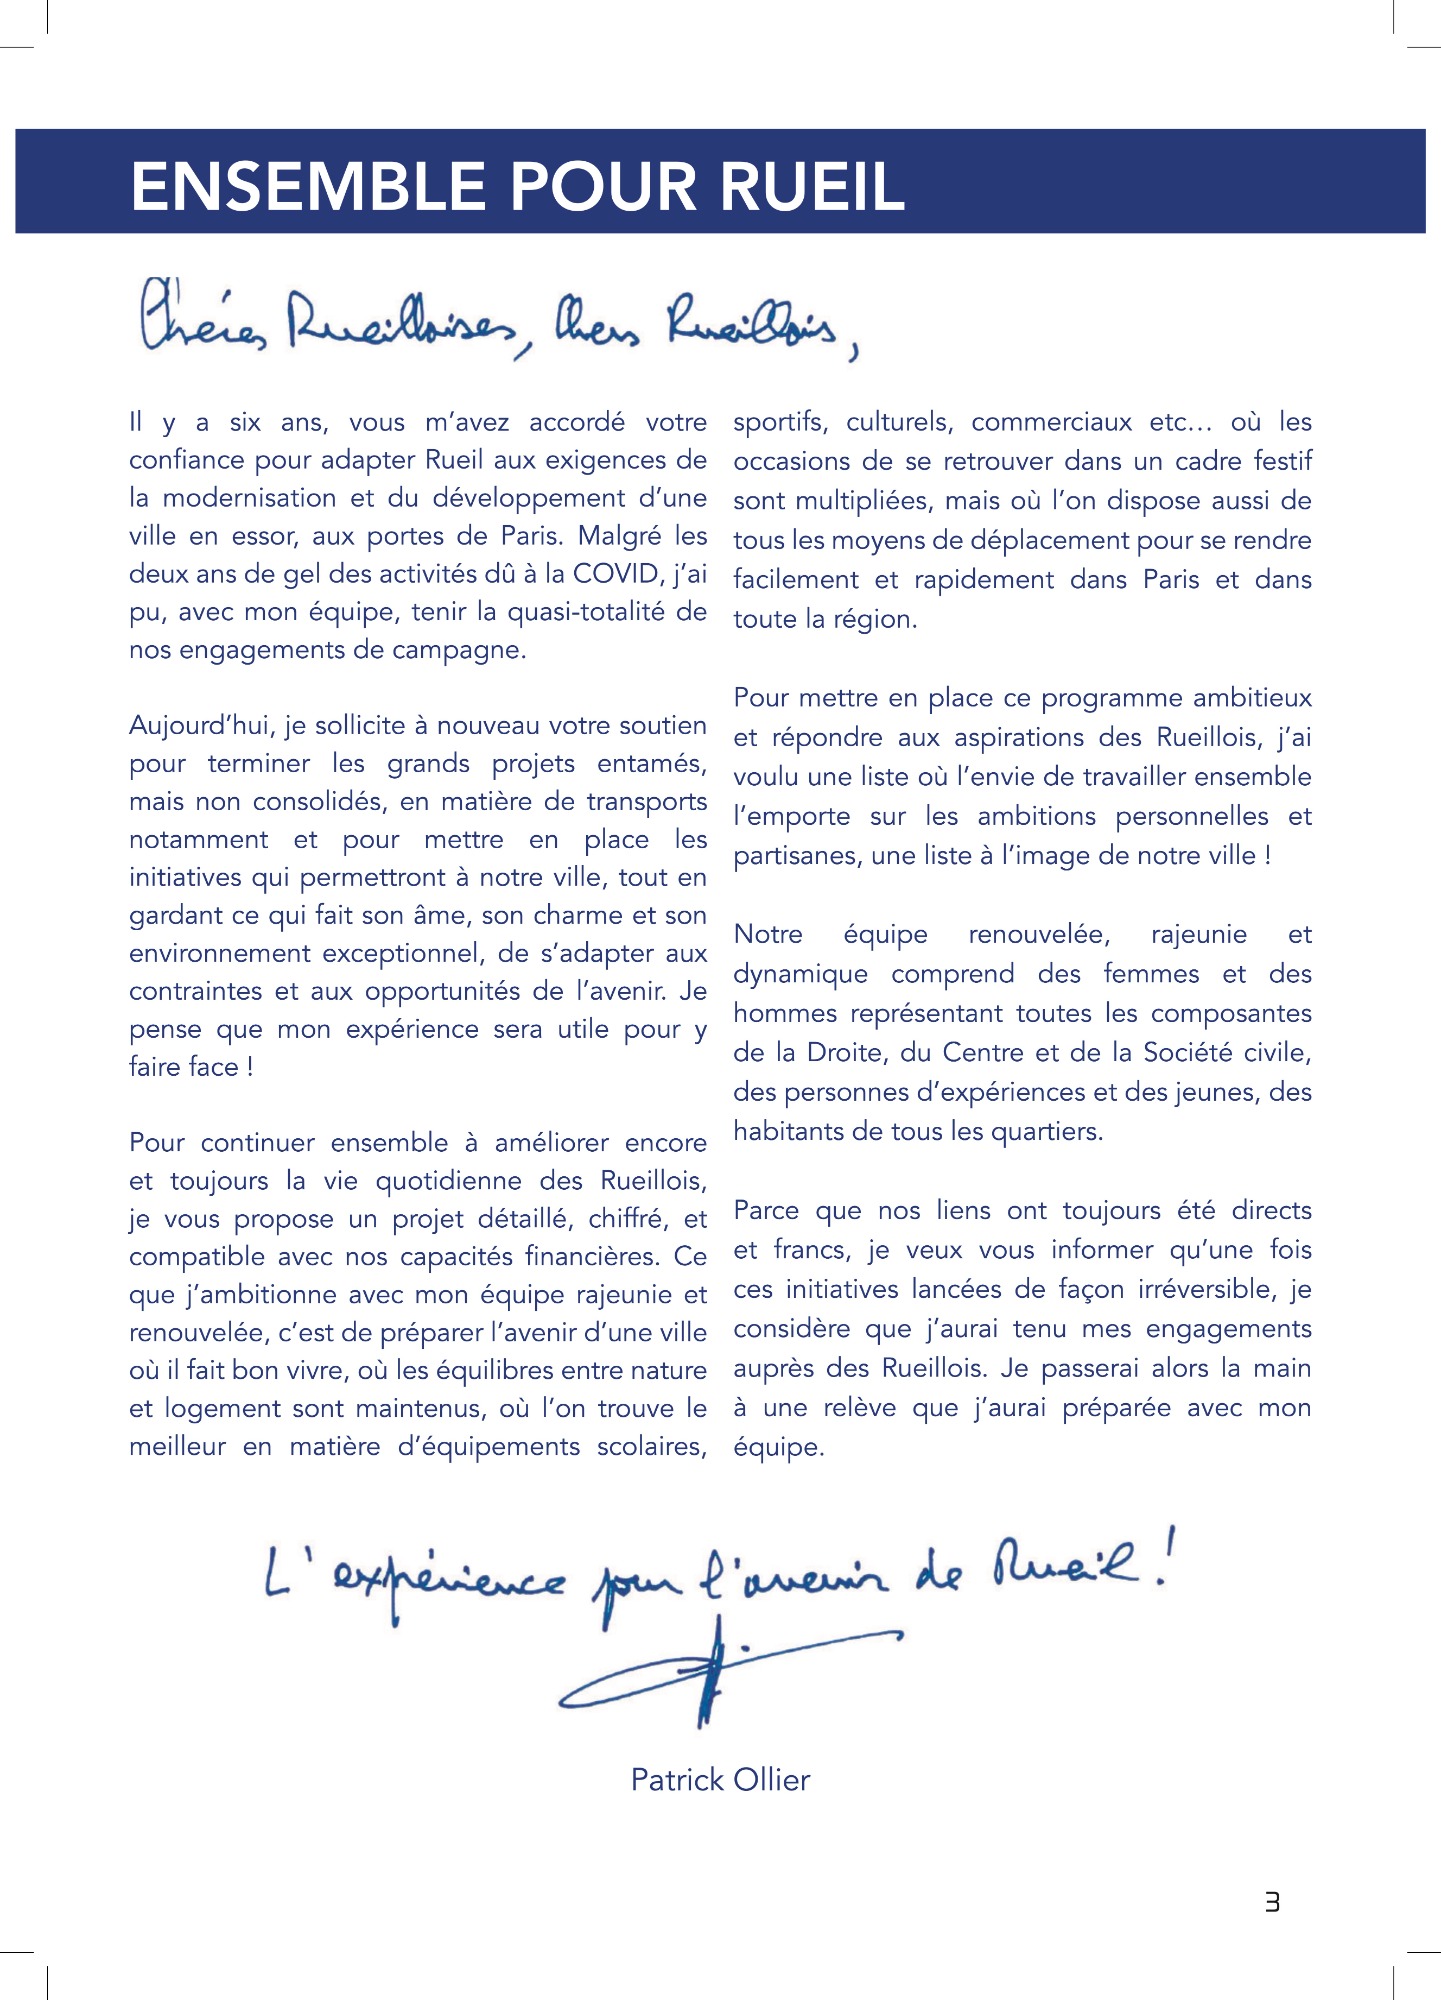 ENSEMBLE POUR RUEIL
Chères Rueilloises, Chers Rueillois,
Il y a six ans, vous m’avez accordé votre
confiance pour adapter Rueil aux exigences de
la modernisation et du développement d’une
ville en essor, aux portes de Paris. Malgré les
deux ans de gel des activités dû à la COVID, j’ai
pu, avec mon équipe, tenir la quasi-totalité de
nos engagements de campagne.
Aujourd’hui, je sollicite à nouveau votre soutien
pour terminer les grands projets entamés,
mais non consolidés, en matière de transports
notamment et pour mettre en place les
initiatives qui permettront à notre ville, tout en
gardant ce qui fait son âme, son charme et son
environnement exceptionnel, de s’adapter aux
contraintes et aux opportunités de l’avenir. Je
pense que mon expérience sera utile pour y
faire face !
Pour continuer ensemble à améliorer encore
et toujours la vie quotidienne des Rueillois,
je vous propose un projet détaillé, chiffré, et
compatible avec nos capacités financières. Ce
que j’ambitionne avec mon équipe rajeunie et
renouvelée, c’est de préparer l’avenir d’une ville
où il fait bon vivre, où les équilibres entre nature
et logement sont maintenus, où l’on trouve le
meilleur en matière d’équipements scolaires,
sportifs, culturels, commerciaux etc… où les
occasions de se retrouver dans un cadre festif
sont multipliées, mais où l’on dispose aussi de
tous les moyens de déplacement pour se rendre
facilement et rapidement dans Paris et dans
toute la région.
Pour mettre en place ce programme ambitieux
et répondre aux aspirations des Rueillois, j’ai
voulu une liste où l’envie de travailler ensemble
l’emporte sur les ambitions personnelles et
partisanes, une liste à l’image de notre ville !
Notre équipe renouvelée, rajeunie et
dynamique comprend des femmes et des
hommes représentant toutes les composantes
de la Droite, du Centre et de la Société civile,
des personnes d’expériences et des jeunes, des
habitants de tous les quartiers.
Parce que nos liens ont toujours été directs
et francs, je veux vous informer qu’une fois
ces initiatives lancées de façon irréversible, je
considère que j’aurai tenu mes engagements
auprès des Rueillois. Je passerai alors la main
à une relève que j’aurai préparée avec mon
équipe.
L'expérience pour l'avenir de Rueil !
Patrick Ollier
3